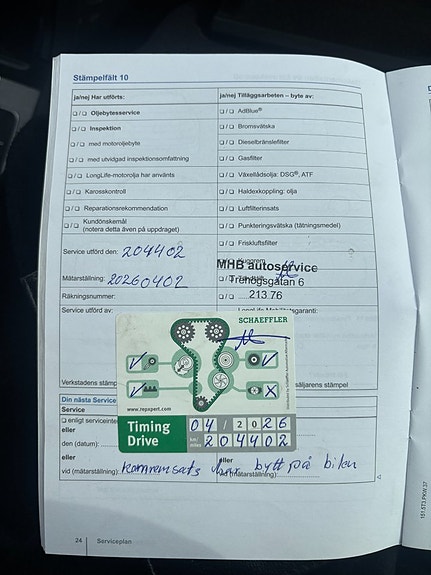 Stämpelfält 10
ja/nej Har utförts:
❑ / ❑ Oljebytesservice
❑ / ❑ Inspektion
❑ / ❑ med motoroljebyte
❑ / ❑ med utvidgad inspektionsomfattning
❑ / ❑ LongLife-motorolja har använts
❑ / ❑ Karosskontroll
❑ / ❑ Reparationsrekommendation
❑ / ❑ Kundönskemål
(notera detta även på uppdraget)
Service utförd den: 204402
Mätarställning: 20260402
Räkningsnummer:
Service utförd av:
ja/nej Tilläggsarbeten – byte av:
❑ / ❑ AdBlue®
❑ / ❑ Bromsvätska
❑ / ❑ Dieselbränslefilter
❑ / ❑ Gasfilter
❑ / ❑ Växellådsolja: DSG®, ATF
❑ / ❑ Haldexkoppling: olja
❑ / ❑ Luftfilterinsats
❑ / ❑ Punkteringsvätska (tätningsmedel)
❑ / ❑ Friskluftsfilter
MHB autoservice
Trehögsgatan 6
213 76
SCHAEFFLER
www.repxpert.com
Timing
Drive
04 / 2026
km/
miles
204402
Verkstadens stämp
säljarens stämpel
Din nästa Service
Service
❑ enligt serviceinter
eller
den (datum):
eller
vid (mätarställning)
eller
vid (mätarställning)
kamremsats bytt på bilen
24 Serviceplan
151.5T3.PKW.37